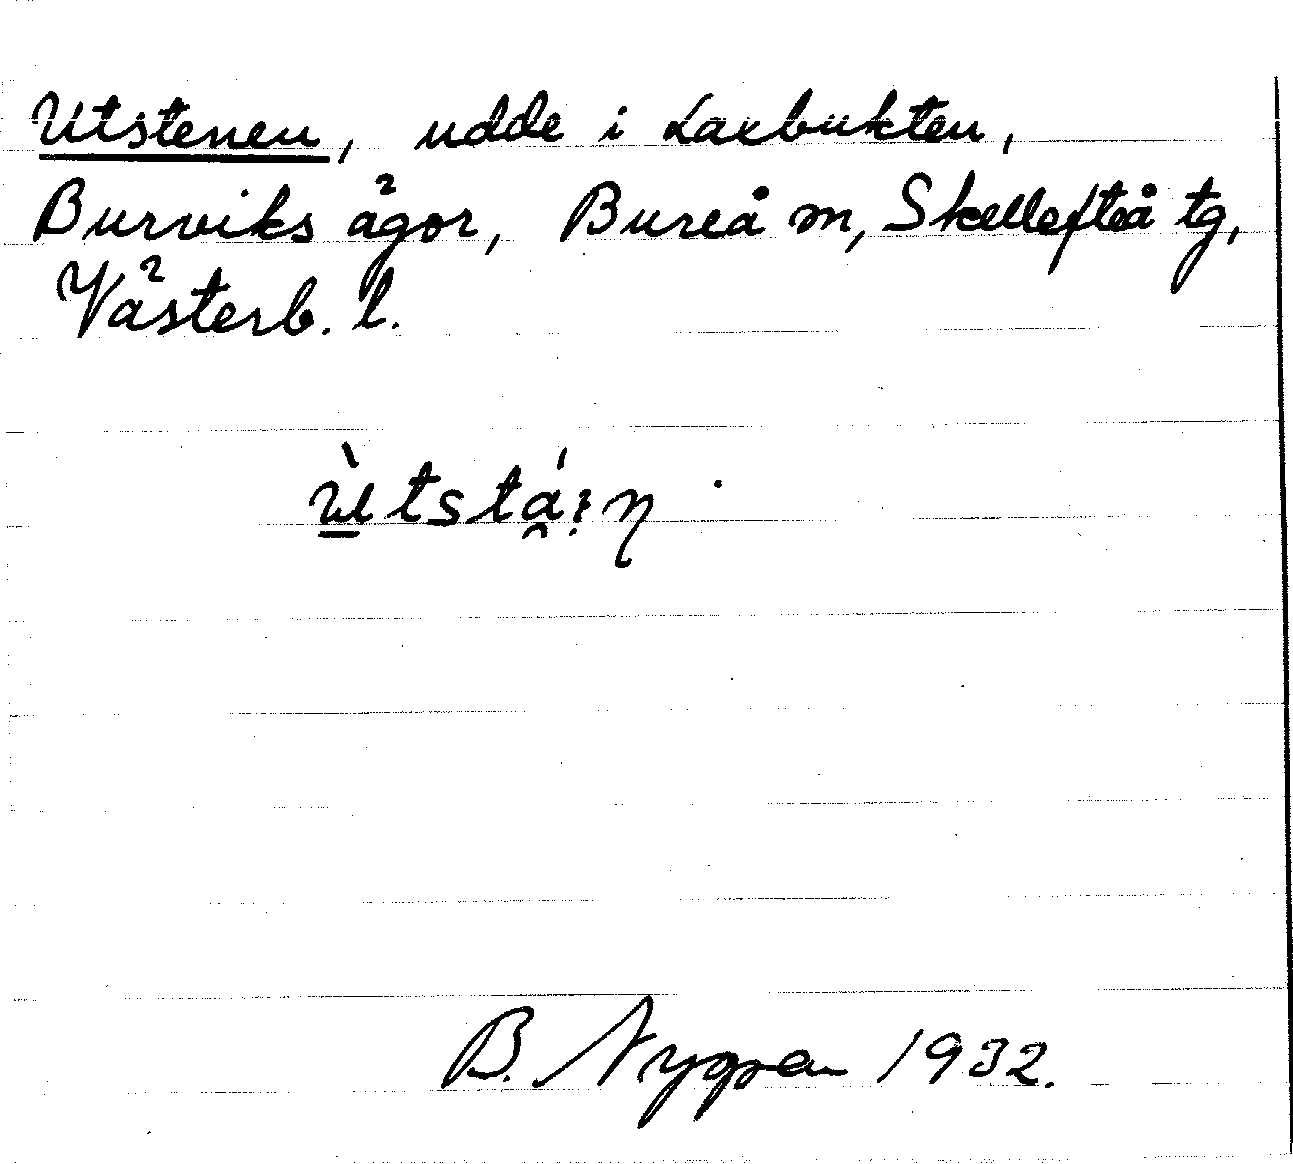 Utstenen, udde i Laxbukten,
Burviks ägor, Bureå m, Skellefteå tg,
Västerb. l.
B. Nygren 1932.